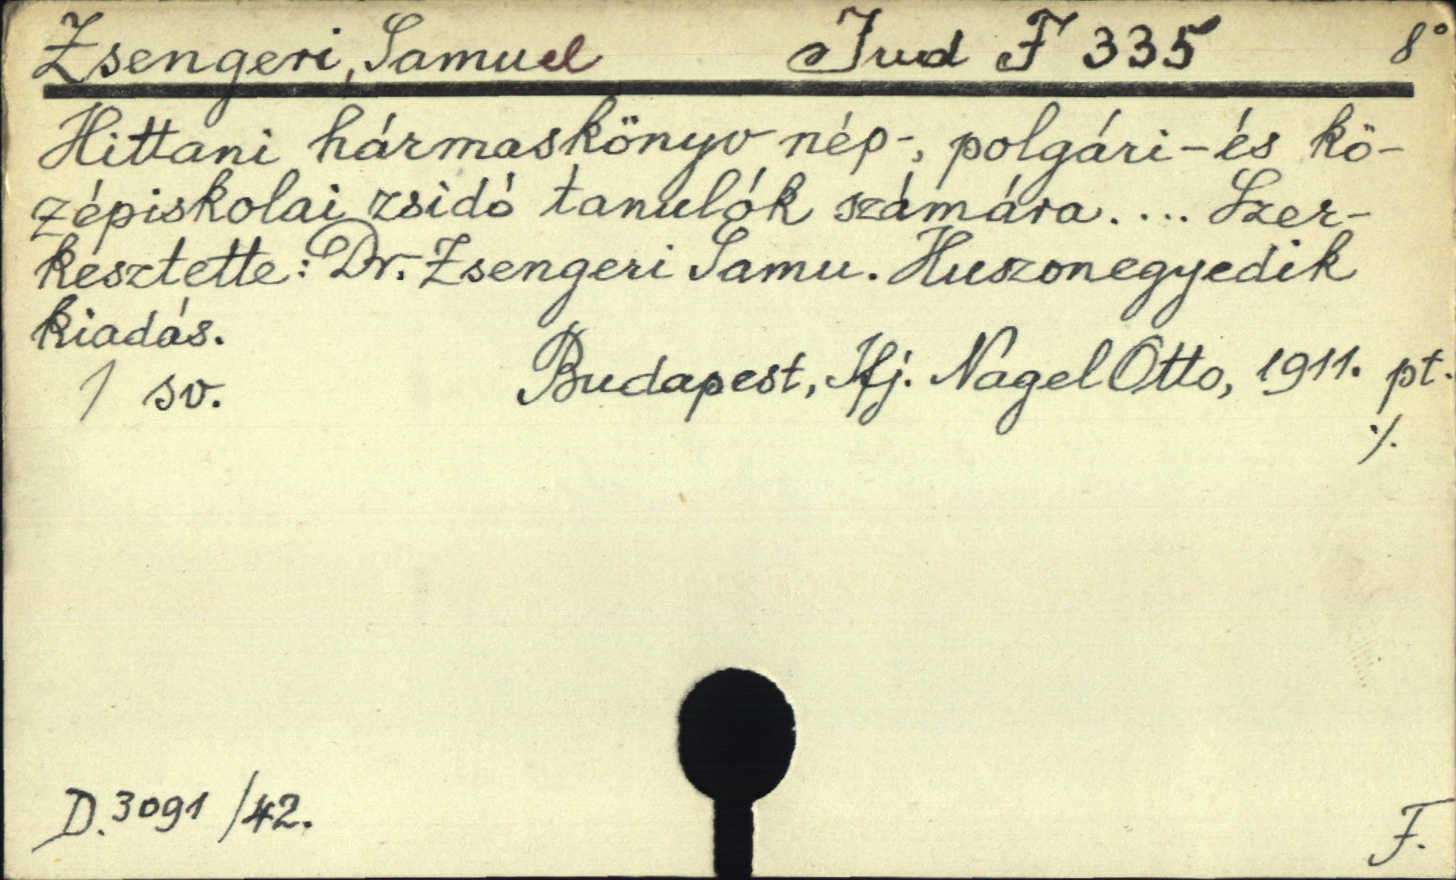 Zsengeri, Samuel Jud F 335 8°
Hittani hármaskönyv nép-, polgári- és kö-
zépiskolai zsidó tanulók számára. ... Szer-
kesztette: Dr. Zsengeri Samu. Huszonegyedik
kiadás.
1 sv. Budapest, Ifj. Nagel Otto, 1911. pt.
./.
D. 3091/42.
F.